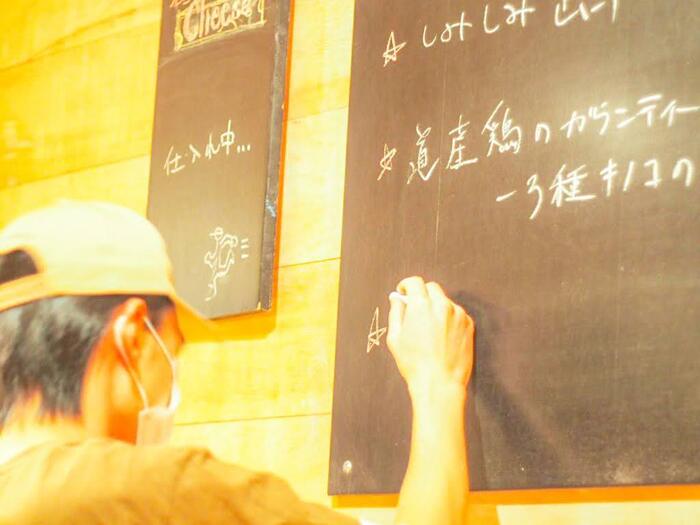 Cheese
仕入れ中...
☆ しみしみ
☆ 道産鶏のガランティー
-3種キノコの
☆